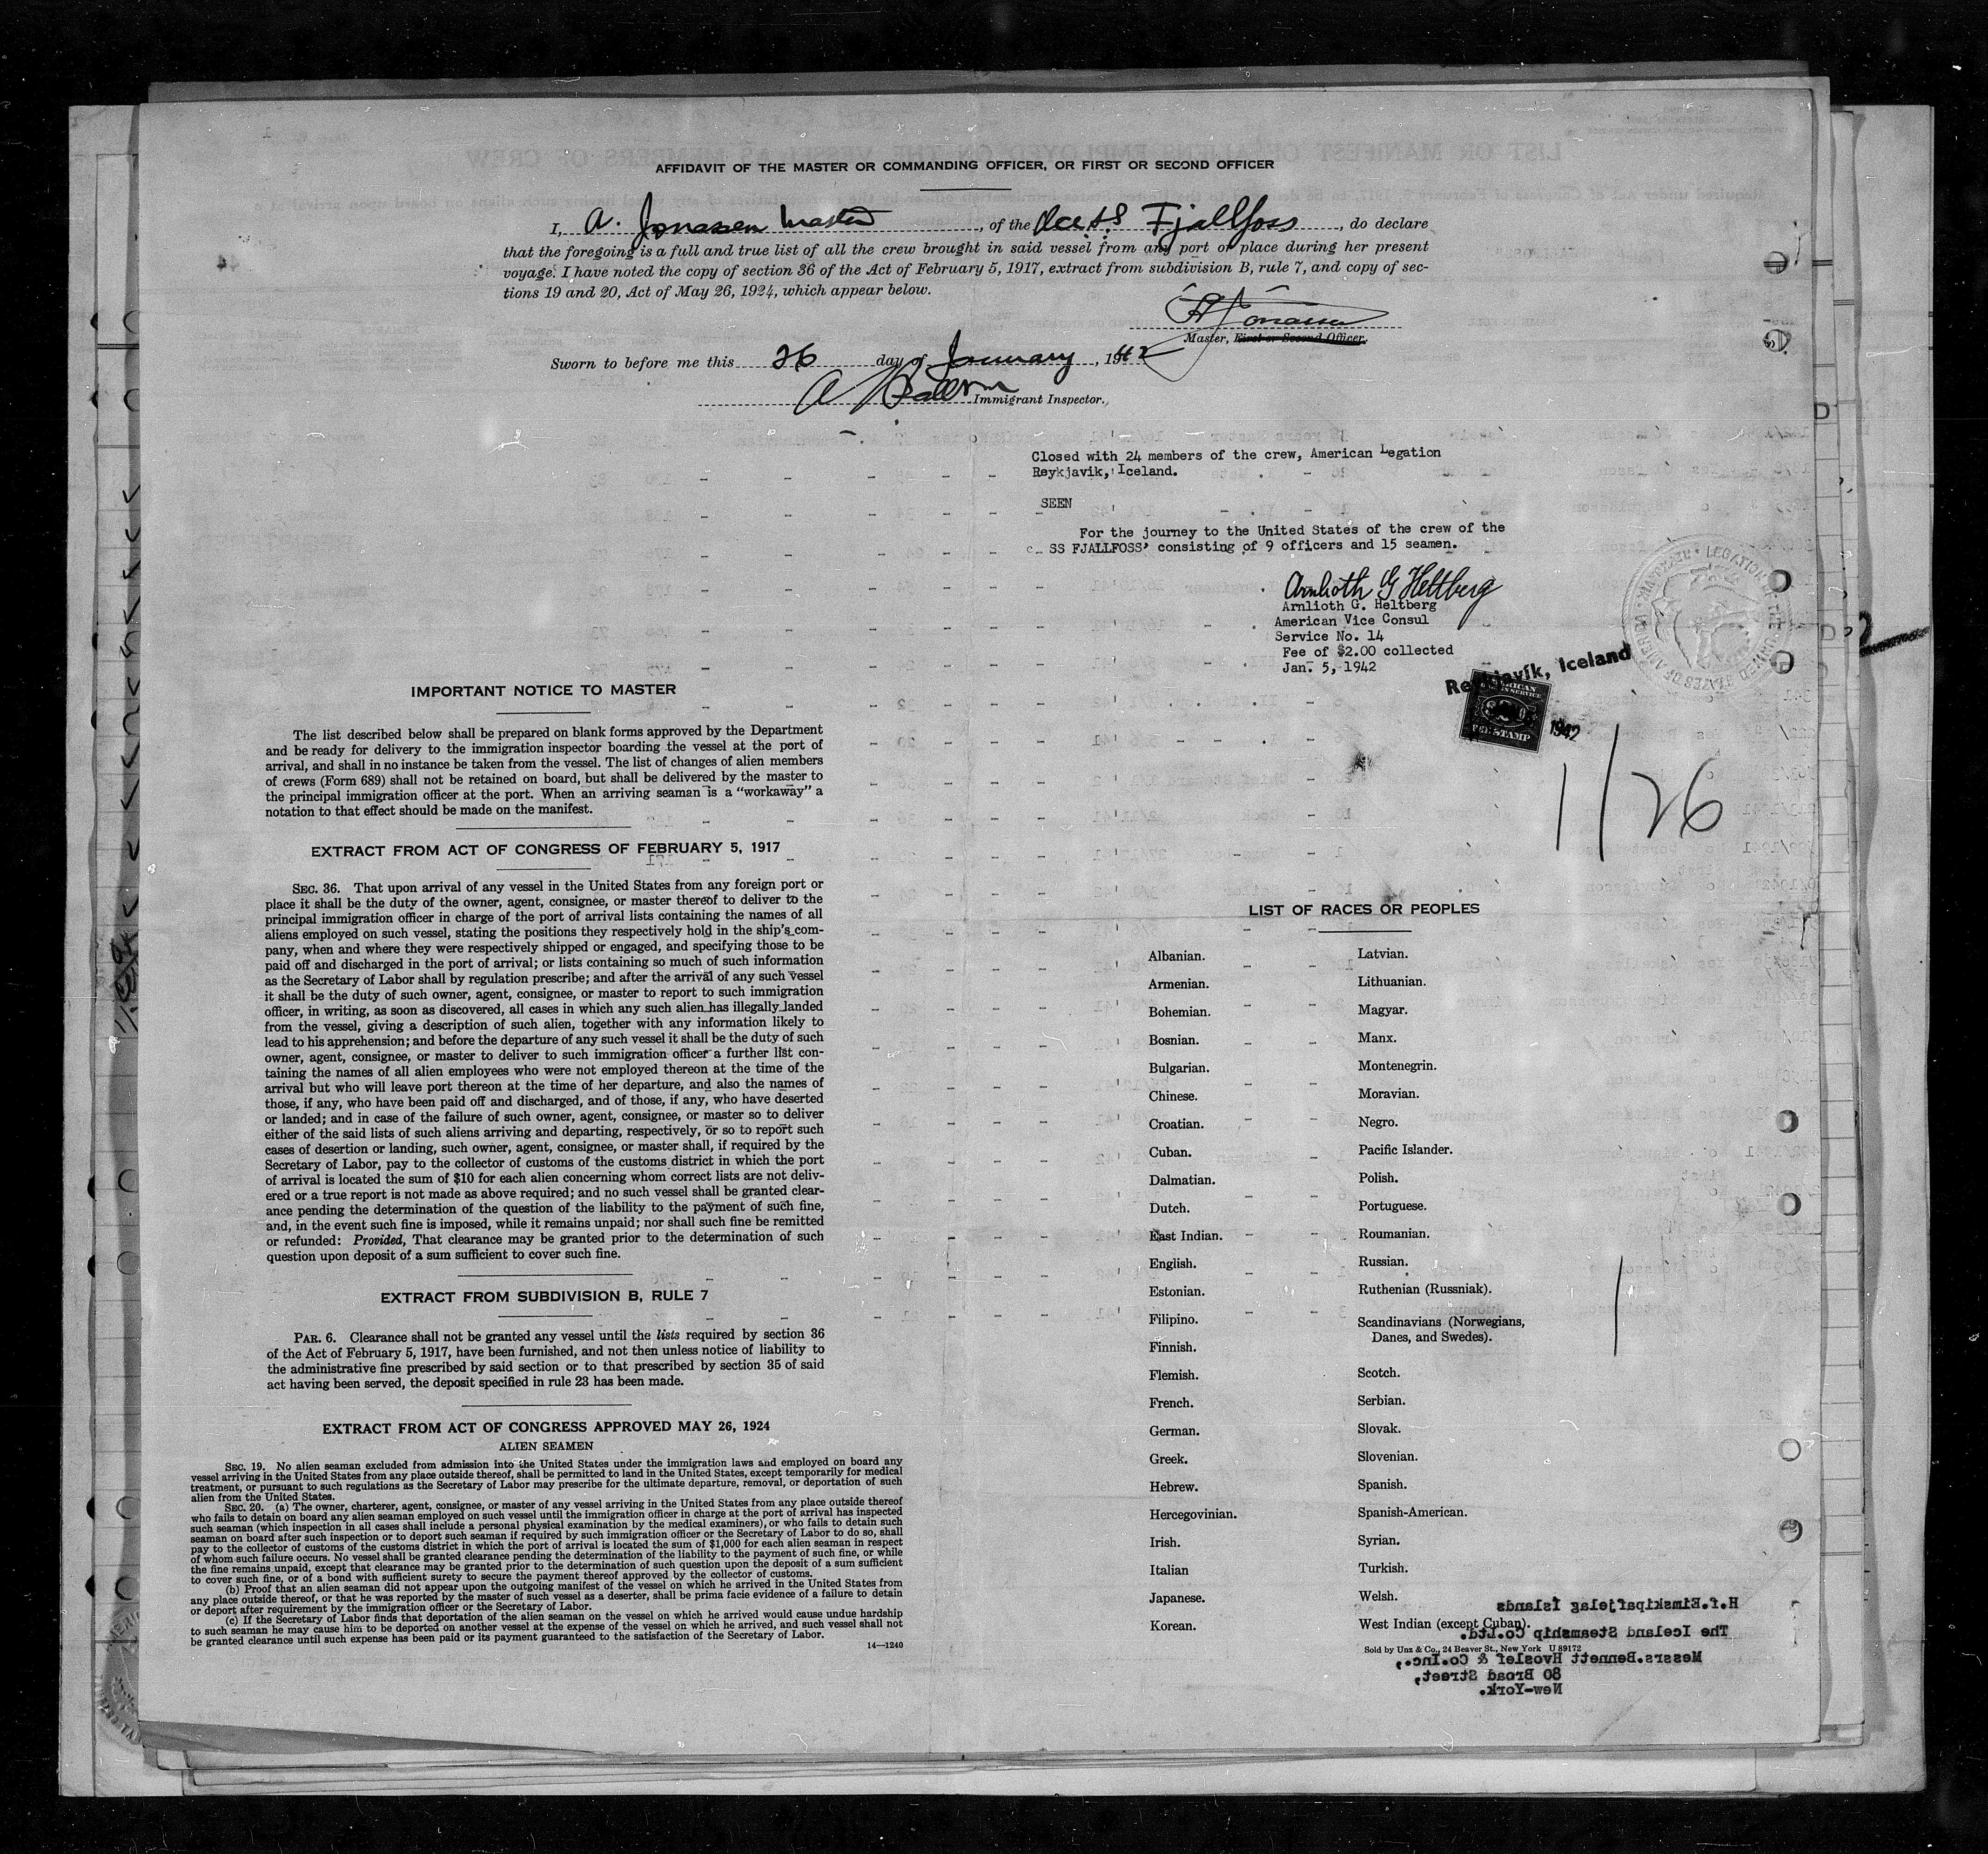 AFFIDAVIT OF THE MASTER OR COMMANDING OFFICER, OR FIRST OR SECOND OFFICER
I, A. Jonassen Master, of the Ice SS. Fjallfoss, do declare
that the foregoing is a full and true list of all the crew brought in said vessel from any port or place during her present
voyage. I have noted the copy of section 36 of the Act of February 5, 1917, extract from subdivision B, rule 7, and copy of sec-
tions 19 and 20, Act of May 26, 1924, which appear below.
Master, First or Second Officer.
Sworn to before me this 26 day of January, 1942
Immigrant Inspector.
Closed with 24 members of the crew, American Legation
Reykjavik, Iceland.
SEEN
For the journey to the United States of the crew of the
SS FJALLFOSS' consisting of 9 officers and 15 seamen.
Arnlioth G Heltberg
Arnlioth G. Heltberg
American Vice Consul
Service No. 14
Fee of $2.00 collected
Jan. 5, 1942
Reykjavík, Iceland
FEE STAMP
1942
1/26
IMPORTANT NOTICE TO MASTER
The list described below shall be prepared on blank forms approved by the Department
and be ready for delivery to the immigration inspector boarding the vessel at the port of
arrival, and shall in no instance be taken from the vessel. The list of changes of alien members
of crews (Form 689) shall not be retained on board, but shall be delivered by the master to
the principal immigration officer at the port. When an arriving seaman is a "workaway" a
notation to that effect should be made on the manifest.
EXTRACT FROM ACT OF CONGRESS OF FEBRUARY 5, 1917
SEC. 36. That upon arrival of any vessel in the United States from any foreign port or
place it shall be the duty of the owner, agent, consignee, or master thereof to deliver to the
principal immigration officer in charge of the port of arrival lists containing the names of all
aliens employed on such vessel, stating the positions they respectively hold in the ship's com-
pany, when and where they were respectively shipped or engaged, and specifying those to be
paid off and discharged in the port of arrival; or lists containing so much of such information
as the Secretary of Labor shall by regulation prescribe; and after the arrival of any such vessel
it shall be the duty of such owner, agent, consignee, or master to report to such immigration
officer, in writing, as soon as discovered, all cases in which any such alien has illegally landed
from the vessel, giving a description of such alien, together with any information likely to
lead to his apprehension; and before the departure of any such vessel it shall be the duty of such
owner, agent, consignee, or master to deliver to such immigration officer a further list con-
taining the names of all alien employees who were not employed thereon at the time of the
arrival but who will leave port thereon at the time of her departure, and also the names of
those, if any, who have been paid off and discharged, and of those, if any, who have deserted
or landed; and in case of the failure of such owner, agent, consignee, or master so to deliver
either of the said lists of such aliens arriving and departing, respectively, or so to report such
cases of desertion or landing, such owner, agent, consignee, or master shall, if required by the
Secretary of Labor, pay to the collector of customs of the customs district in which the port
of arrival is located the sum of $10 for each alien concerning whom correct lists are not deliv-
ered or a true report is not made as above required; and no such vessel shall be granted clear-
ance pending the determination of the question of the liability to the payment of such fine,
and, in the event such fine is imposed, while it remains unpaid; nor shall such fine be remitted
or refunded: Provided, That clearance may be granted prior to the determination of such
question upon deposit of a sum sufficient to cover such fine.
EXTRACT FROM SUBDIVISION B, RULE 7
PAR. 6. Clearance shall not be granted any vessel until the lists required by section 36
of the Act of February 5, 1917, have been furnished, and not then unless notice of liability to
the administrative fine prescribed by said section or to that prescribed by section 35 of said
act having been served, the deposit specified in rule 23 has been made.
EXTRACT FROM ACT OF CONGRESS APPROVED MAY 26, 1924
ALIEN SEAMEN
SEC. 19. No alien seaman excluded from admission into the United States under the immigration laws and employed on board any
vessel arriving in the United States from any place outside thereof, shall be permitted to land in the United States, except temporarily for medical
treatment, or pursuant to such regulations as the Secretary of Labor may prescribe for the ultimate departure, removal, or deportation of such
alien from the United States.
SEC. 20. (a) The owner, charterer, agent, consignee, or master of any vessel arriving in the United States from any place outside thereof
who fails to detain on board any alien seaman employed on such vessel until the immigration officer in charge at the port of arrival has inspected
such seaman (which inspection in all cases shall include a personal physical examination by the medical examiners), or who fails to detain such
seaman on board after such inspection or to deport such seaman if required by such immigration officer or the Secretary of Labor to do so, shall
pay to the collector of customs of the customs district in which the port of arrival is located the sum of $1,000 for each alien seaman in respect
of whom such failure occurs. No vessel shall be granted clearance pending the determination of the liability to the payment of such fine, or while
the fine remains unpaid, except that clearance may be granted prior to the determination of such question upon the deposit of a sum sufficient
to cover such fine, or of a bond with sufficient surety to secure the payment thereof approved by the collector of customs.
(b) Proof that an alien seaman did not appear upon the outgoing manifest of the vessel on which he arrived in the United States from
any place outside thereof, or that he was reported by the master of such vessel as a deserter, shall be prima facie evidence of a failure to detain
or deport after requirement by the immigration officer or the Secretary of Labor.
(c) If the Secretary of Labor finds that deportation of the alien seaman on the vessel on which he arrived would cause undue hardship
to such seaman he may cause him to be deported on another vessel at the expense of the vessel on which he arrived, and such vessel shall not
be granted clearance until such expense has been paid or its payment guaranteed to the satisfaction of the Secretary of Labor.
14—1240
LIST OF RACES OR PEOPLES
Albanian.
Armenian.
Bohemian.
Bosnian.
Bulgarian.
Chinese.
Croatian.
Cuban.
Dalmatian.
Dutch.
East Indian.
English.
Estonian.
Filipino.
Finnish.
Flemish.
French.
German.
Greek.
Hebrew.
Hercegovinian.
Irish.
Italian
Japanese.
Korean.
Latvian.
Lithuanian.
Magyar.
Manx.
Montenegrin.
Moravian.
Negro.
Pacific Islander.
Polish.
Portuguese.
Roumanian.
Russian.
Ruthenian (Russniak).
Scandinavians (Norwegians,
Danes, and Swedes).
Scotch.
Serbian.
Slovak.
Slovenian.
Spanish.
Spanish-American.
Syrian.
Turkish.
Welsh.
West Indian (except Cuban).
Sold by Unz & Co., 24 Beaver St., New York U 89172
H.f. Eimskipafjelag Íslands
The Iceland Steamship Co.Ltd.
Messrs. Bennett Hvoslef & Co.Inc.,
80 Broad Street,
New-York.